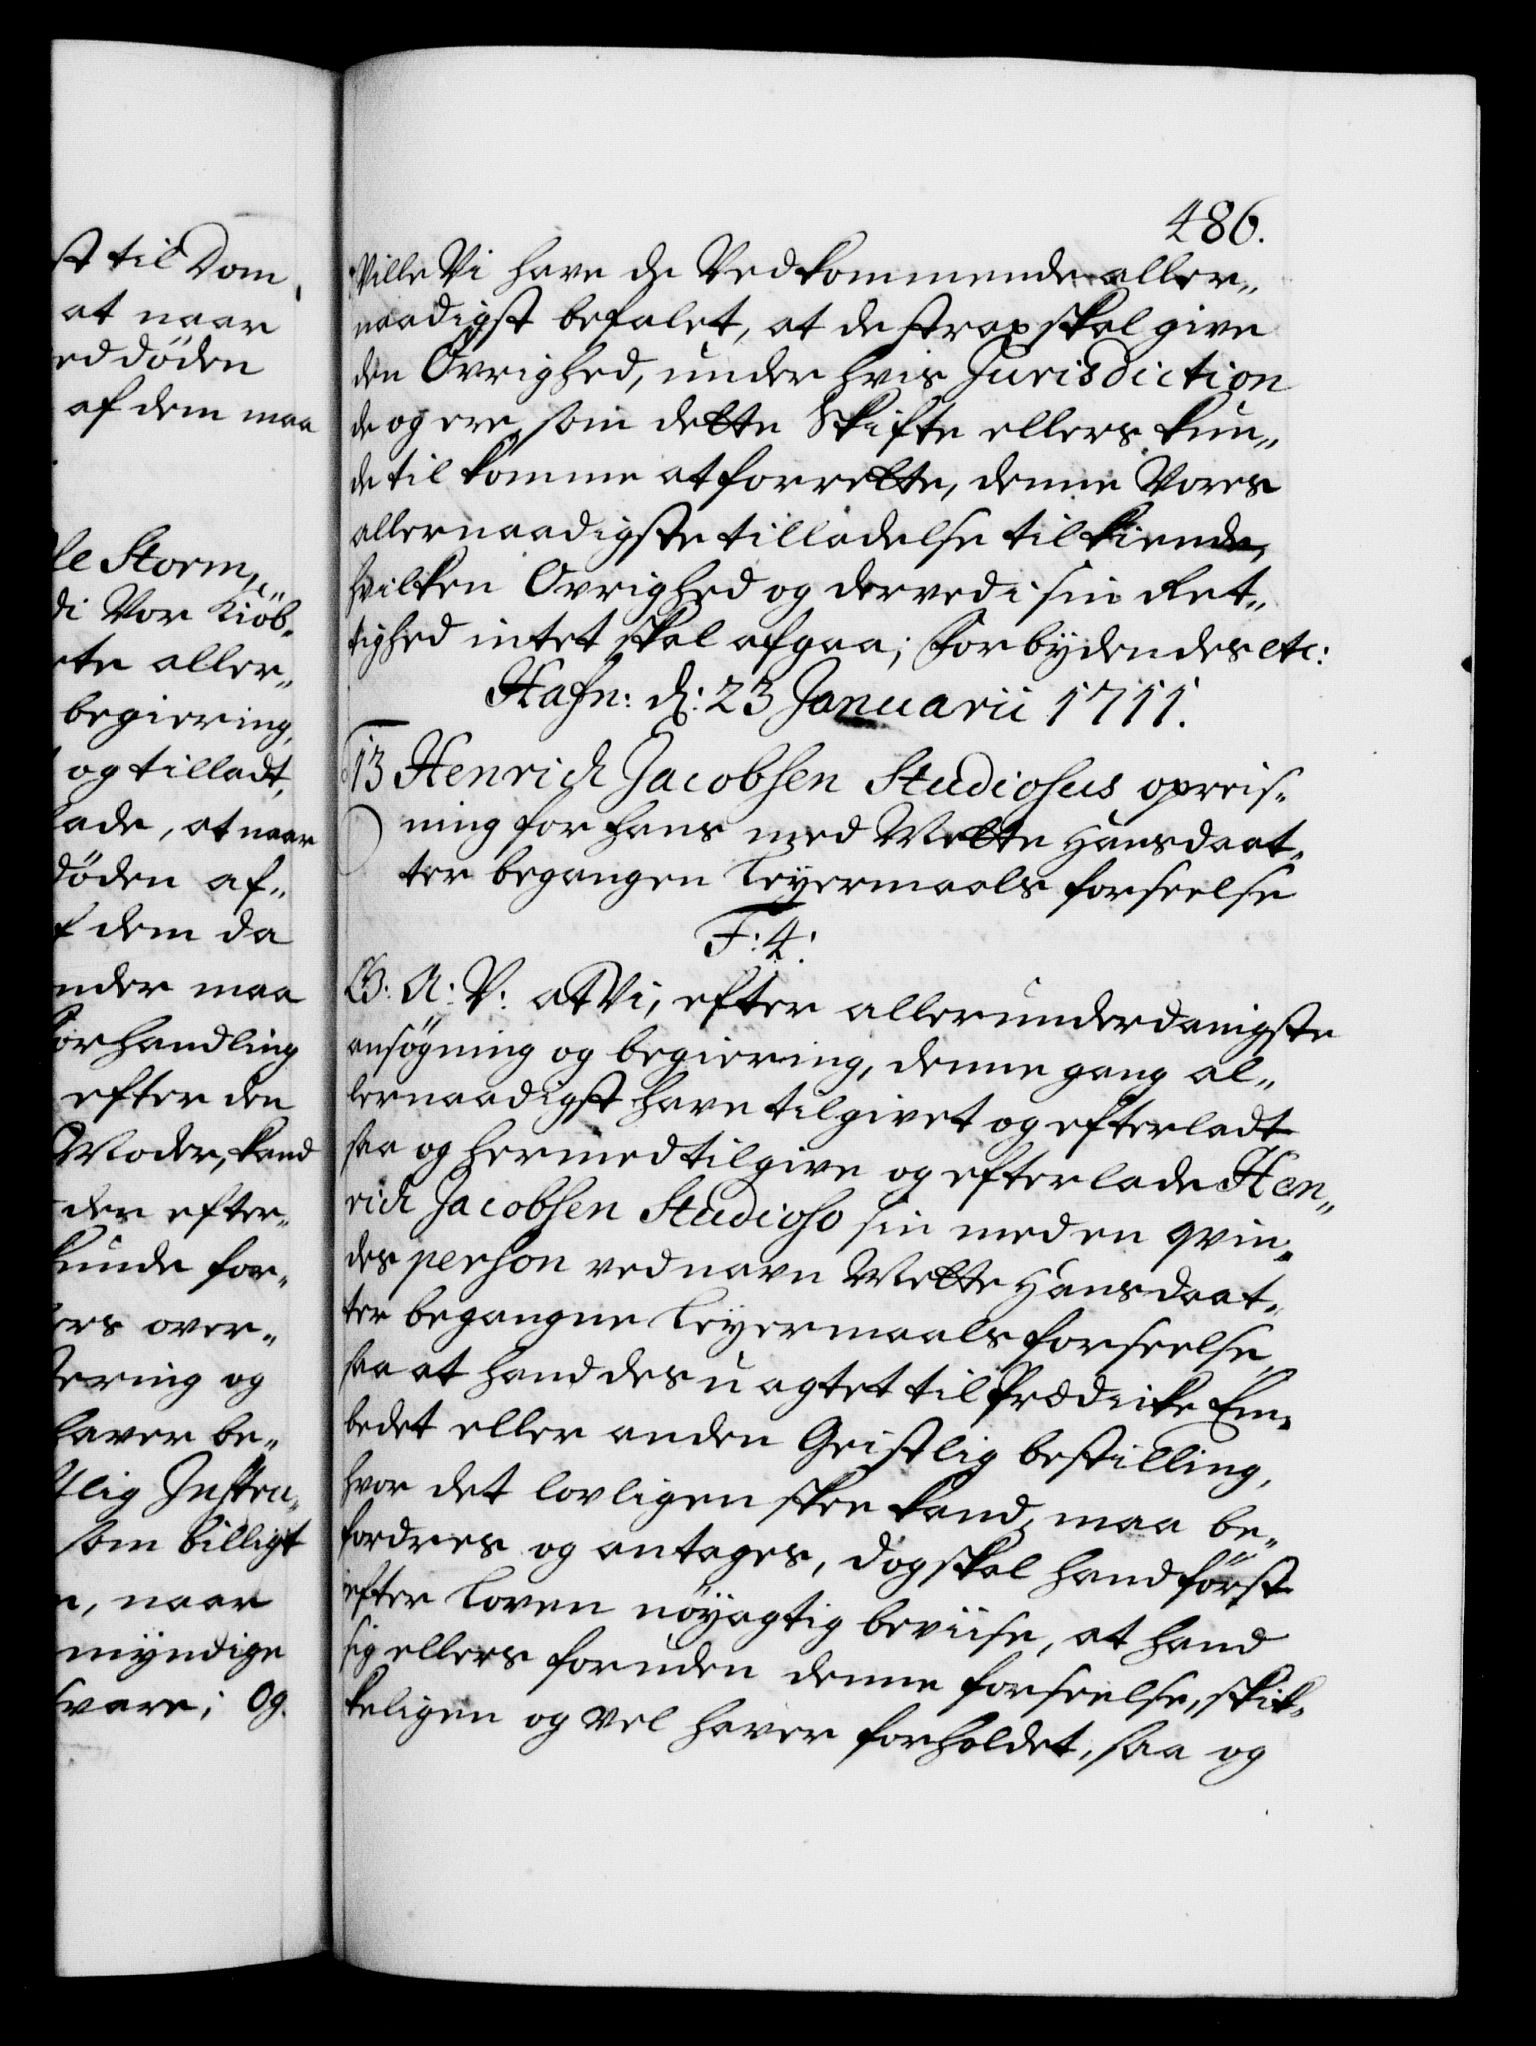 st til Dom
at naar
ed döden
af dem maa
le Storm,,
di Vor Kiöb„
ete aller„
begiering,
og tilladt,
lade, at naar
döden af„
f dem da
nder maa
forhandling
efter den
Moder, kand
der efter„
kunde for„
ers over„
tering og
haver be„
tlig Instru„
som billigt
n, naar
myndige
svare; Og
486.
Ville Vi have de Vedkommende aller„
naadigst befalet, at de strax skal give
den Øvrighed, under hvis Jurisdiction
de og ere, som dette Skifte ellers kun„
de til komme at forrette, denne Vores
allernaadigste tilladelse tilkiende,
hvilken Øvrighed og derved i sin Ret„
tighed intet skal afgaa; Forbydendes etc:
Hafn: d: 23 Januarii 1711.
13 Henrich Jacobsen Studiosus opreis„
ning for hans med Mette Hansdaat„
ter begangen Leyermaals forseelse
F: 4:
G: A: V: at Vi, efter allerunderdanigste
ansögning og begiering, denne gang al„
lernaadigst have tilgivet og efterladt
saa og hermed tilgive og efterlade Hen„
rich Jacobsen Studioso sin med en qvin„
des person ved navn Mette Hansdaat„
ter begangne Leyermaals forseelse,
saa at hand des uagtet til Prædicke Em„
bedet eller anden Geistlig bestilling,
hvor det lovligen skee kand, maa be„
fordres og antages, dog skal hand først
efter Loven nöyagtig beviise, at hand
sig ellers foruden denne forseelse, skik„
keligen og vel haver forholdet, saa og